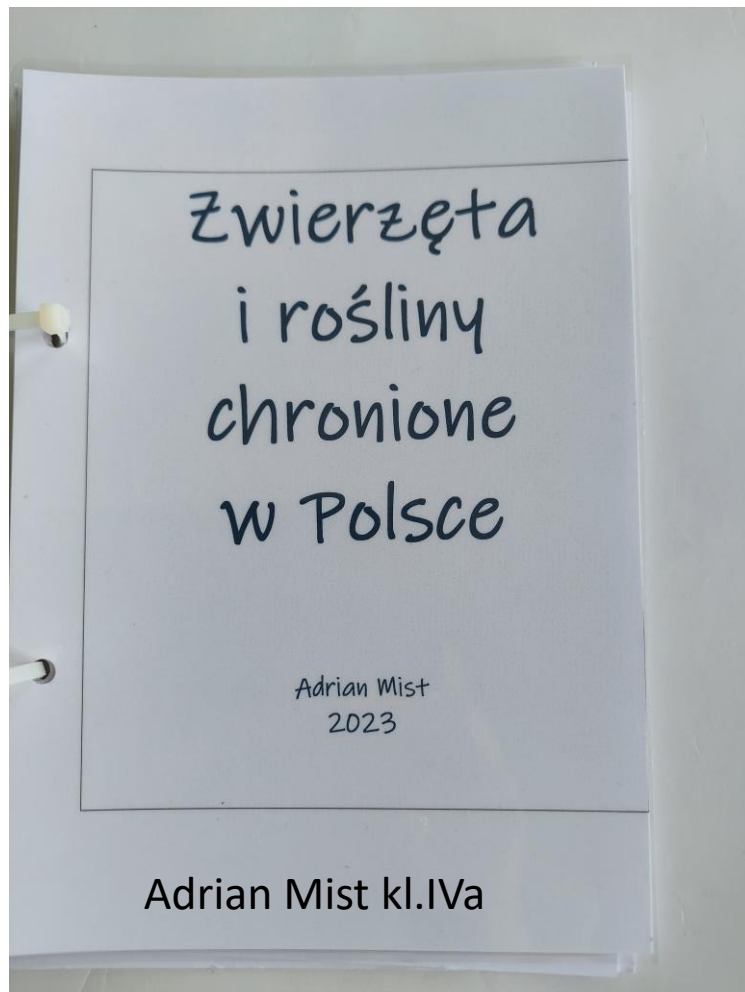 Zwierzęta
i rośliny
chronione
w Polsce
Adrian Mist
2023
Adrian Mist kl.IVa